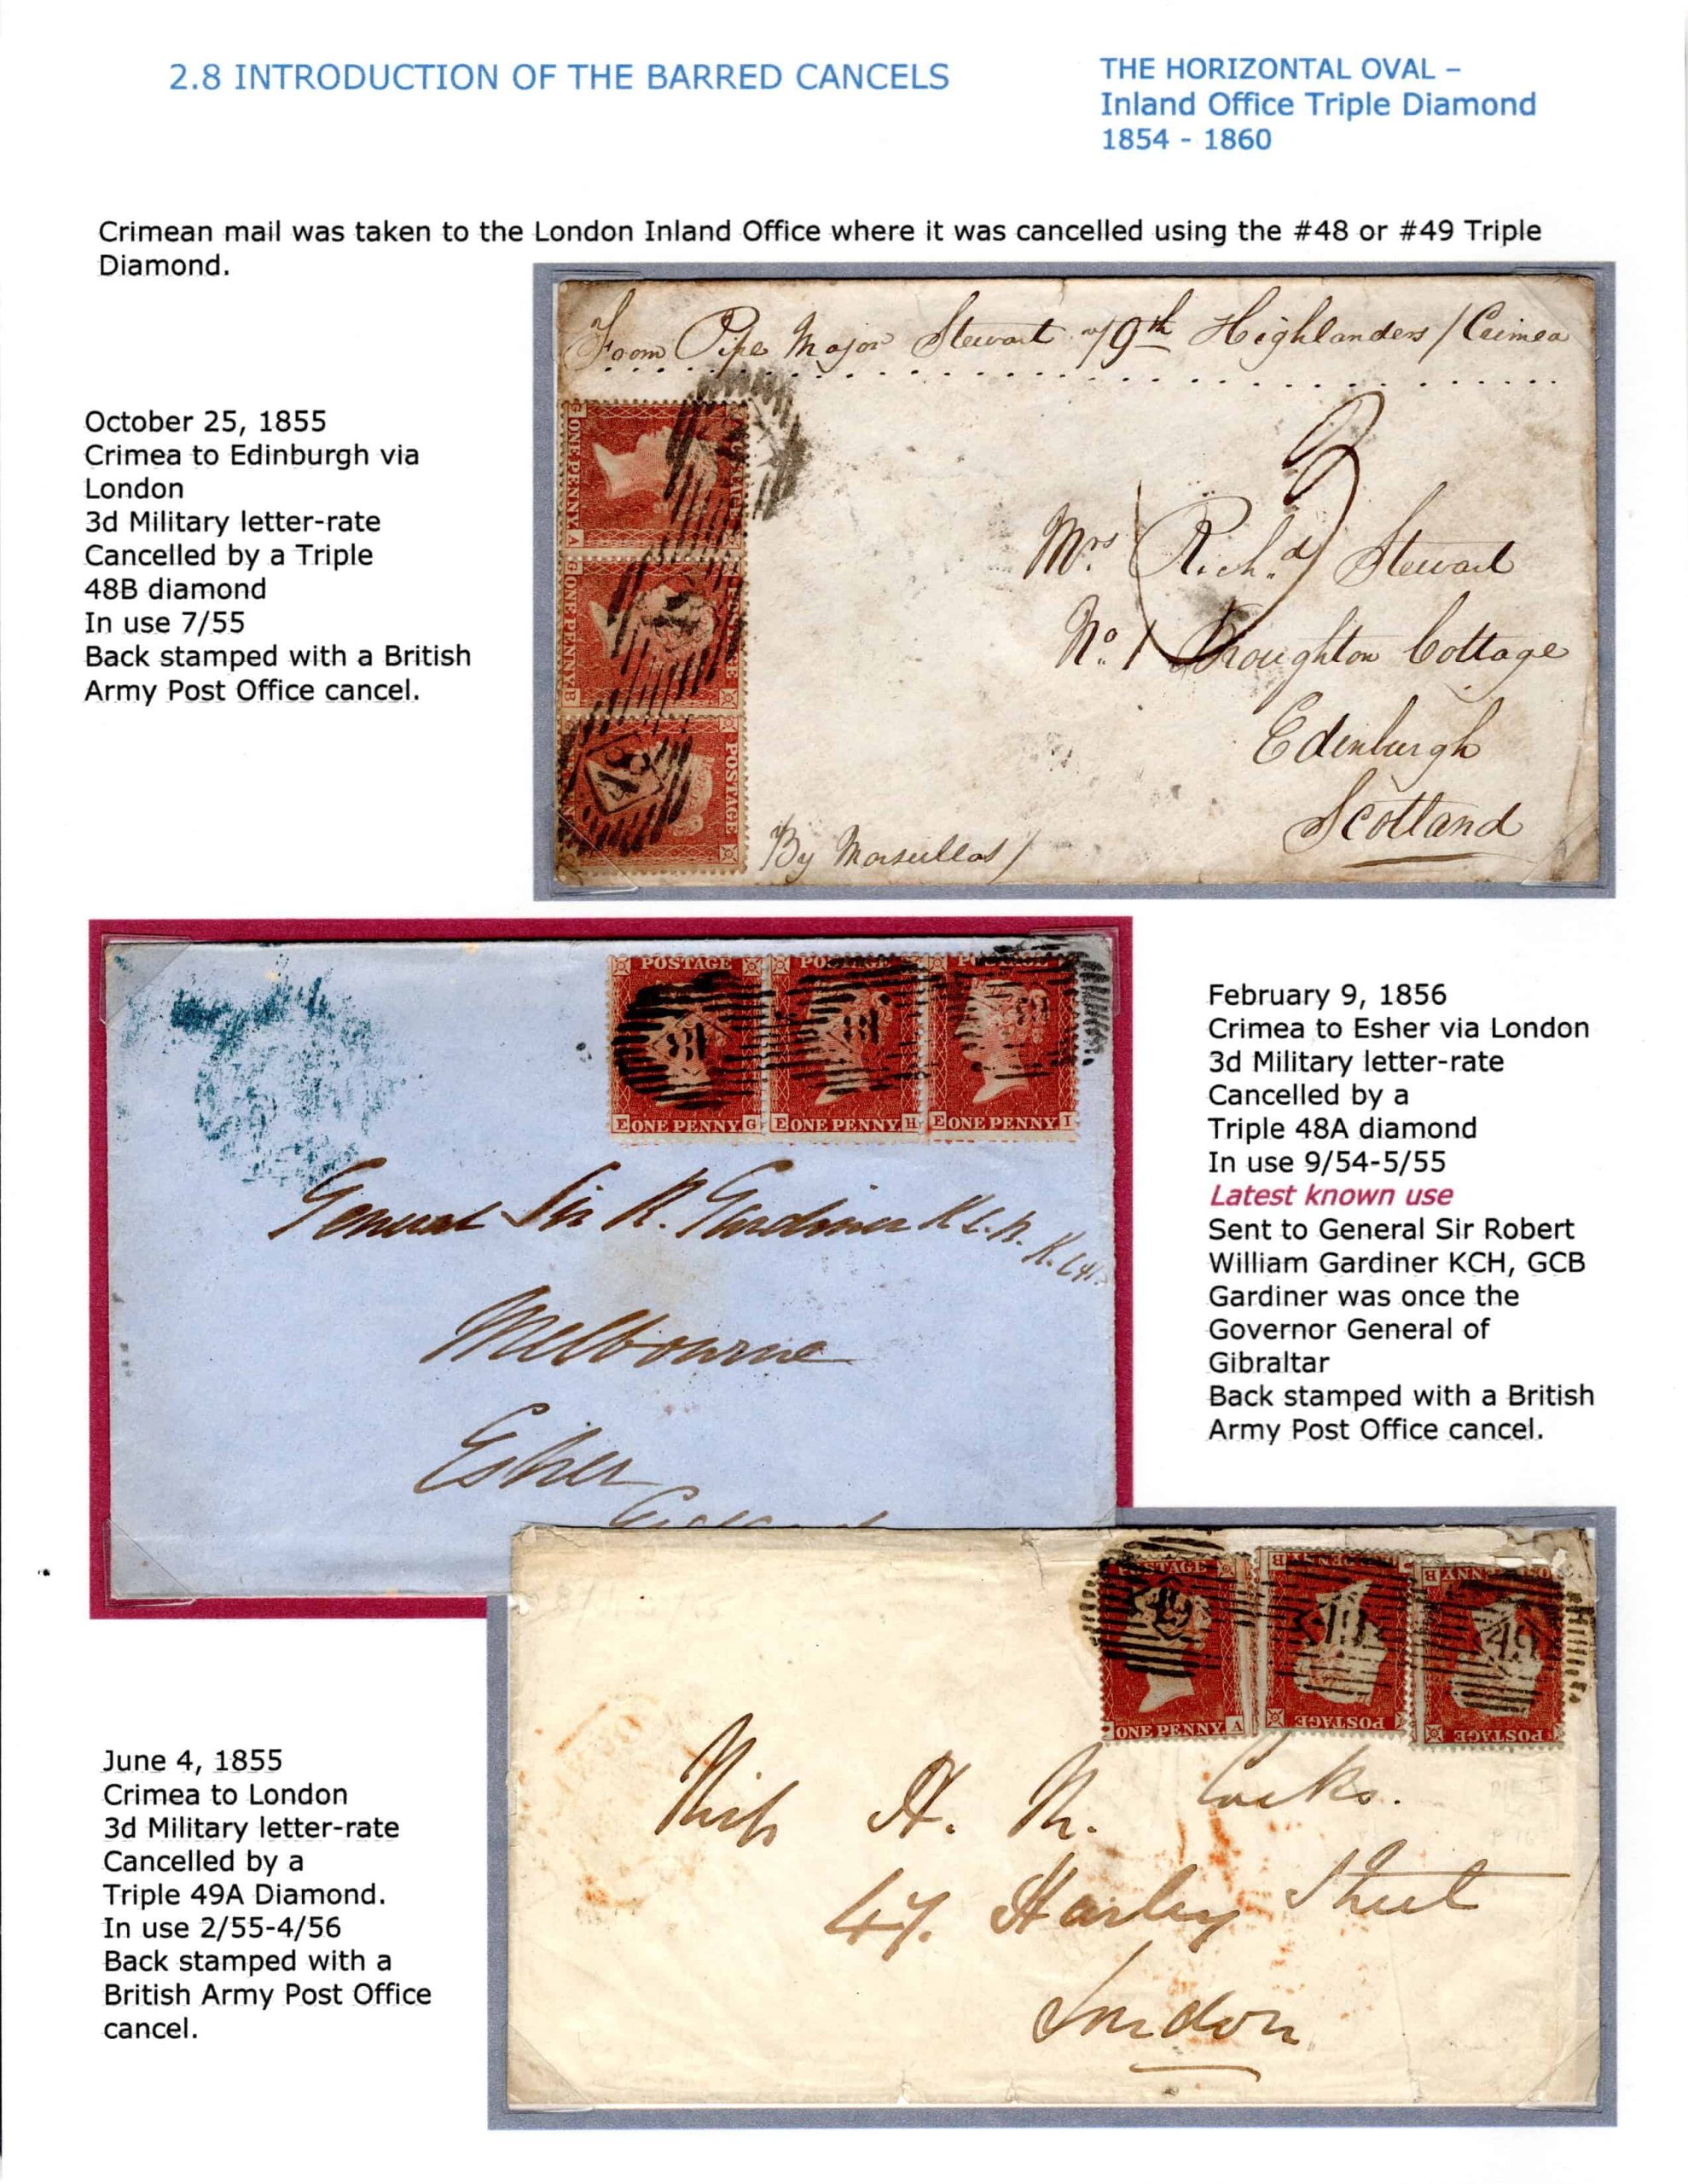 2.8 INTRODUCTION OF THE BARRED CANCELS
THE HORIZONTAL OVAL –
Inland Office Triple Diamond
1854 - 1860
Crimean mail was taken to the London Inland Office where it was cancelled using the #48 or #49 Triple
Diamond.
October 25, 1855
Crimea to Edinburgh via
London
3d Military letter-rate
Cancelled by a Triple
48B diamond
In use 7/55
Back stamped with a British
Army Post Office cancel.
From Pipe Major Stewart 79th Highlanders / Crimea
3
Mrs Richd Stewart
No. 1 Broughton Cottage
Edinburgh
Scotland
By Marseillas /
G ONE PENNY A
POSTAGE
G ONE PENNY B
POSTAGE
48
POSTAGE
POSTAGE
E ONE PENNY G
E ONE PENNY H
E ONE PENNY I
General Sir R. Gardiner K.C.B.
K.CH.
Melbourne
Esher
February 9, 1856
Crimea to Esher via London
3d Military letter-rate
Cancelled by a
Triple 48A diamond
In use 9/54-5/55
Latest known use
Sent to General Sir Robert
William Gardiner KCH, GCB
Gardiner was once the
Governor General of
Gibraltar
Back stamped with a British
Army Post Office cancel.
POSTAGE
49
49
49
ONE PENNY A
POSTAGE
POSTAGE
Miss H. M. Cocks.
47. Harley Street
London
June 4, 1855
Crimea to London
3d Military letter-rate
Cancelled by a
Triple 49A Diamond.
In use 2/55-4/56
Back stamped with a
British Army Post Office
cancel.